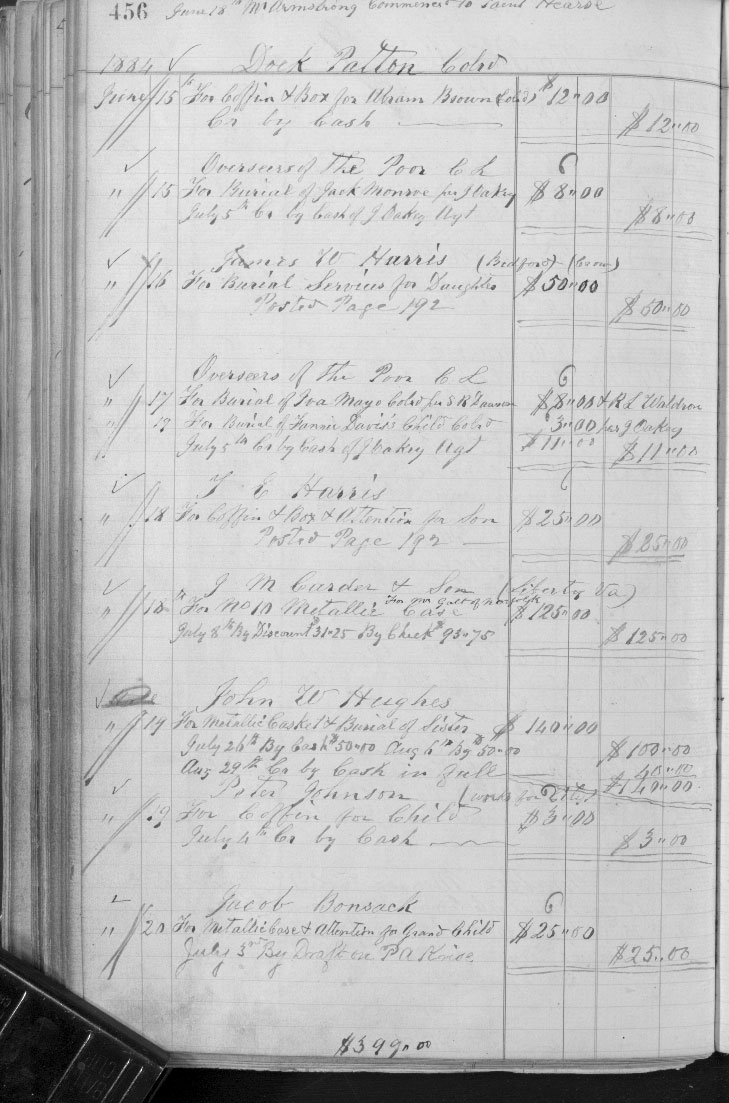 456 June 18th Mr Armstrong Commenced to Paint Hearse
1884 ✓ Dock Patton Cold
June 15th For Coffin & Box for Abram Brown (Cold) $12"00
Cr by Cash $12"00
✓ Overseers of the Poor C L
" 15 For Burial of Jack Monroe per J Oakey $8"00
July 5th Cr by Cash of J Oakey Agt $8"00
✓ James W Harris (Bedford)
" 16 For Burial Services for Daughter $50"00
Posted Page 192 $50"00
✓ Overseers of the Poor C L
" 17 For Burial of Iva Mayo Cold per S R Dawson $8"00 & R L Waldron
" 17 For Burial of Fannie Davis's Child Cold 3"00 per J Oakey
July 5th Cr by Cash of J Oakey Agt $11"00 $11"00
✓ T C Harris
" 18 For Coffin & Box & Attention for Son $25"00
Posted Page 192 $25"00
✓ J M Carder & Son (Liberty Va)
" 18th For No 10 Metallic Case For Mr Galt of Norfolk $125"00
July 8th By Discount $31"25 By Check $93"75 $125"00
✓ John W Hughes
" 19 For Metallic Casket & Burial of Sister $140"00
July 26th By Cash $50"00 Aug 6th By $50"00 $100"00
Aug 29th Cr by Cash in full 40"00
$140"00
✓ Peter Johnson (works for
" 19 For Coffin for Child $3"00
July 4th Cr by Cash $3"00
✓ Jacob Bonsack
" 20 For Metallic Case & Attention for Grand Child $25"00
July 3rd By Draft on P A Krise $25"00
$399"00